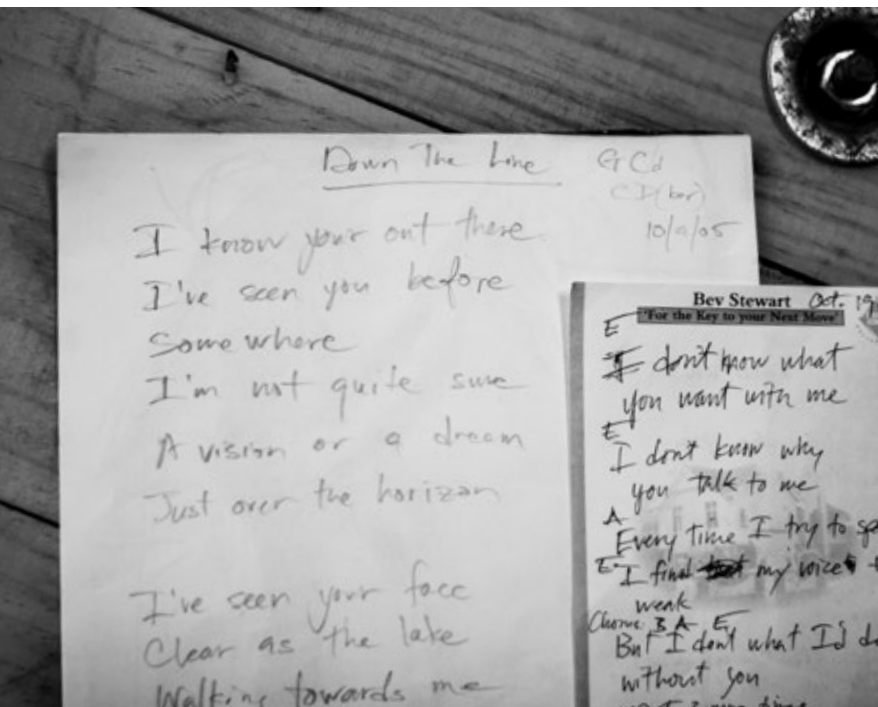 Down The Line
G C d
10/9/05
I know your out there
I've seen you before
Somewhere
I'm not quite sure
A vision or a dream
Just over the horizon
I've seen your face
Clear as the lake
Walking towards me
Bev Stewart Oct. 19
'For the Key to your Next Move'
E
I don't know what
you want with me
E
I don't know why
you talk to me
A
Every time I try to
E I find my voice
weak
Chorus B A E
But I don't what I'd
without you